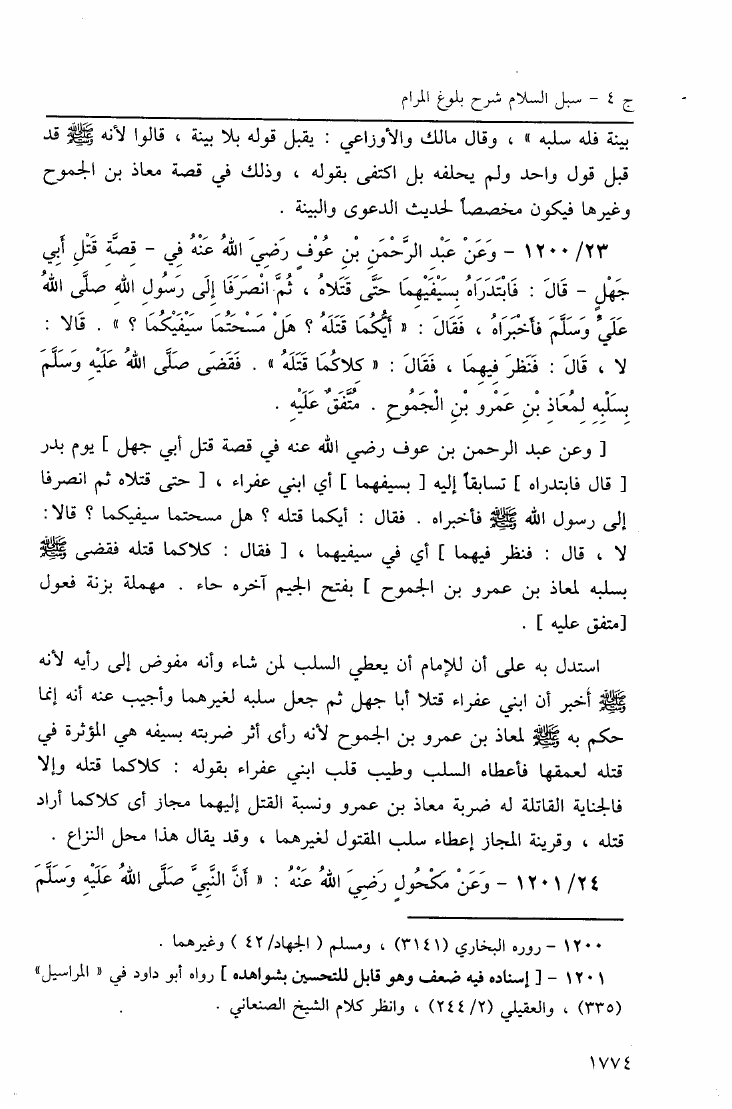 ج ٤ - سبل السلام شرح بلوغ المرام
بينة فله سلبه » ، وقال مالك والأوزاعي : يقبل قوله بلا بينة ، قالوا لأنه ﷺ قد
قبل قول واحد ولم يحلفه بل اكتفى بقوله ، وذلك في قصة معاذ بن الجموح
وغيرها فيكون مخصصاً لحديث الدعوى والبينة .
١٢٠٠/٢٣ - وَعَنْ عَبْدِ الرَّحْمَنِ بْنِ عَوْفٍ رَضِيَ اللهُ عَنْهُ فِي - قِصَّةِ قَتْلِ أَبِي
جَهْلٍ - قَالَ : فَابْتَدَرَاهُ بِسَيْفَيْهِمَا حَتَّى قَتَلَاهُ ، ثُمَّ انْصَرَفَا إِلَى رَسُولِ اللهِ صلَّى اللهُ
عَلَيْهِ وَسَلَّمَ فَأَخْبَرَاهُ ، فَقَالَ : « أَيُّكُمَا قَتَلَهُ ؟ هَلْ مَسَحْتُمَا سَيْفَيْكُمَا ؟ » . قَالَا :
لَا ، قَالَ : فَنَظَرَ فِيهِمَا ، فَقَالَ : « كِلَاكُمَا قَتَلَهُ » . فَقَضَى صلَّى اللهُ عَلَيْهِ وَسَلَّمَ
بِسَلَبِهِ لِمُعَاذِ بْنِ عَمْرِو بْنِ الْجَمُوحِ . مُتَّفَقٌ عَلَيْهِ .
[ وعن عبد الرحمن بن عوف رضي الله عنه في قصة قتل أبي جهل ] يوم بدر
[ قال فابتدراه ] تسابقاً إليه [ بسيفهما ] أي ابني عفراء ، [ حتى قتلاه ثم انصرفا
إلى رسول الله ﷺ فأخبراه . فقال : أيكما قتله ؟ هل مسحتما سيفيكما ؟ قالا :
لا ، قال : فنظر فيهما ] أي في سيفيهما ، [ فقال : كلاكما قتله فقضى ﷺ
بسلبه لمعاذ بن عمرو بن الجموح ] بفتح الجيم آخره حاء . مهملة بزنة فعول
[متفق عليه ] .
استدل به على أن للإمام أن يعطي السلب لمن شاء وأنه مفوض إلى رأيه لأنه
ﷺ أخبر أن ابني عفراء قتلا أبا جهل ثم جعل سلبه لغيرهما وأجيب عنه أنه إنما
حكم به ﷺ لمعاذ بن عمرو بن الجموح لأنه رأى أثر ضربته بسيفه هي المؤثرة في
قتله لعمقها فأعطاه السلب وطيب قلب ابني عفراء بقوله : كلاكما قتله وإلا
فالجناية القاتلة له ضربة معاذ بن عمرو ونسبة القتل إليهما مجاز أى كلاكما أراد
قتله ، وقرينة المجاز إعطاء سلب المقتول لغيرهما ، وقد يقال هذا محل النزاع .
١٢٠١/٢٤ - وَعَنْ مَكْحُولٍ رَضِيَ اللهُ عَنْهُ : « أَنَّ النَّبِيَّ صَلَّى اللهُ عَلَيْهِ وَسَلَّمَ
١٢٠٠ - روره البخاري (٣١٤١) ، ومسلم ( الجهاد/ ٤٢ ) وغيرهما .
١٢٠١ - [ إسناده فيه ضعف وهو قابل للتحسين بشواهده ] رواه أبو داود في « المراسيل»
(٣٣٥) ، والعقيلي (٢٤٤/٢) ، وانظر كلام الشيخ الصنعاني .
١٧٧٤